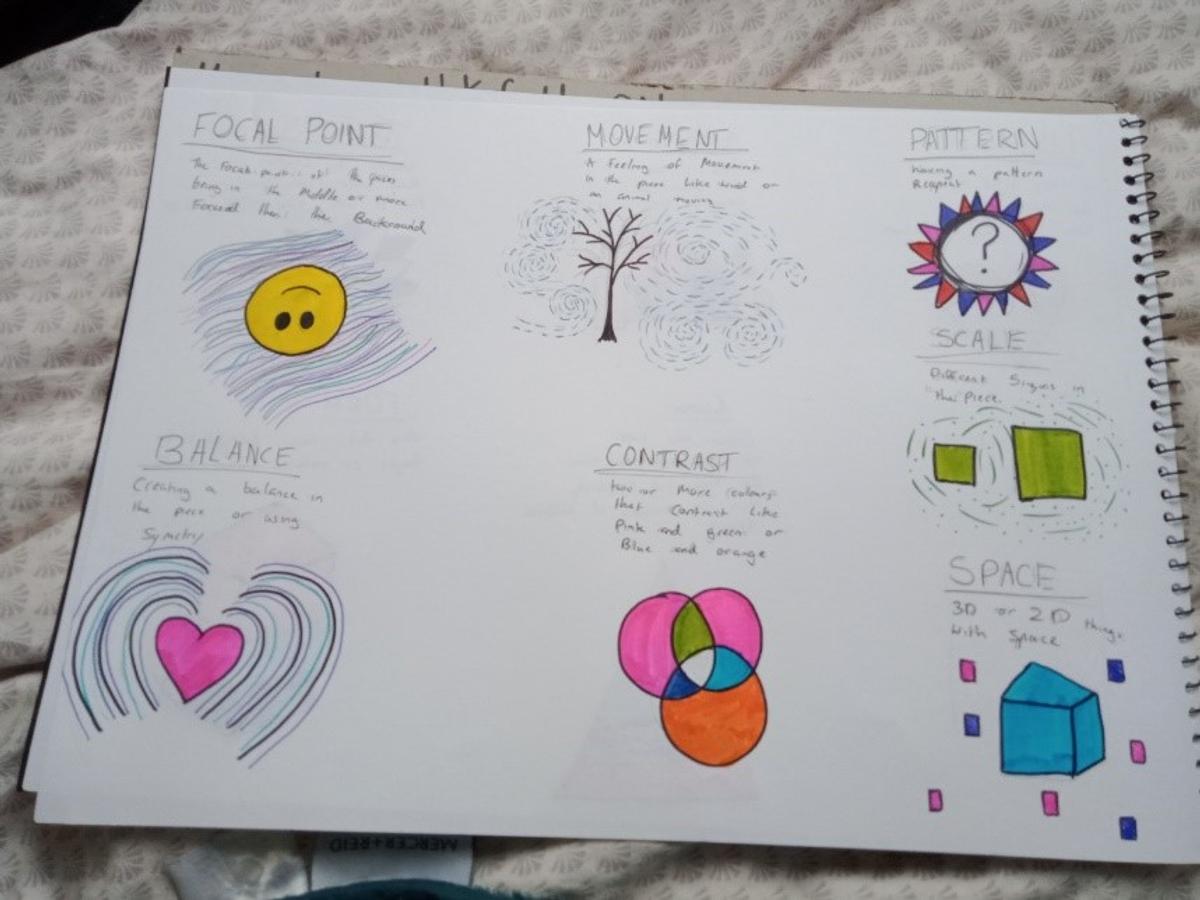 FOCAL POINT
The Focal point of the piece
being in the Middle or more
Focused then the Background
MOVEMENT
A feeling of Movement
in the piece like wind or
an animal moving
PATTERN
having a pattern
Reapeat
?
SCALE
Different Sizes in
the Piece.
BALANCE
Creating a balance in
the piece or using
Symetry
CONTRAST
two or more colours
that Contrast Like
Pink and green or
Blue and orange
SPACE
3D or 2D things
with Space
MERCER+REID